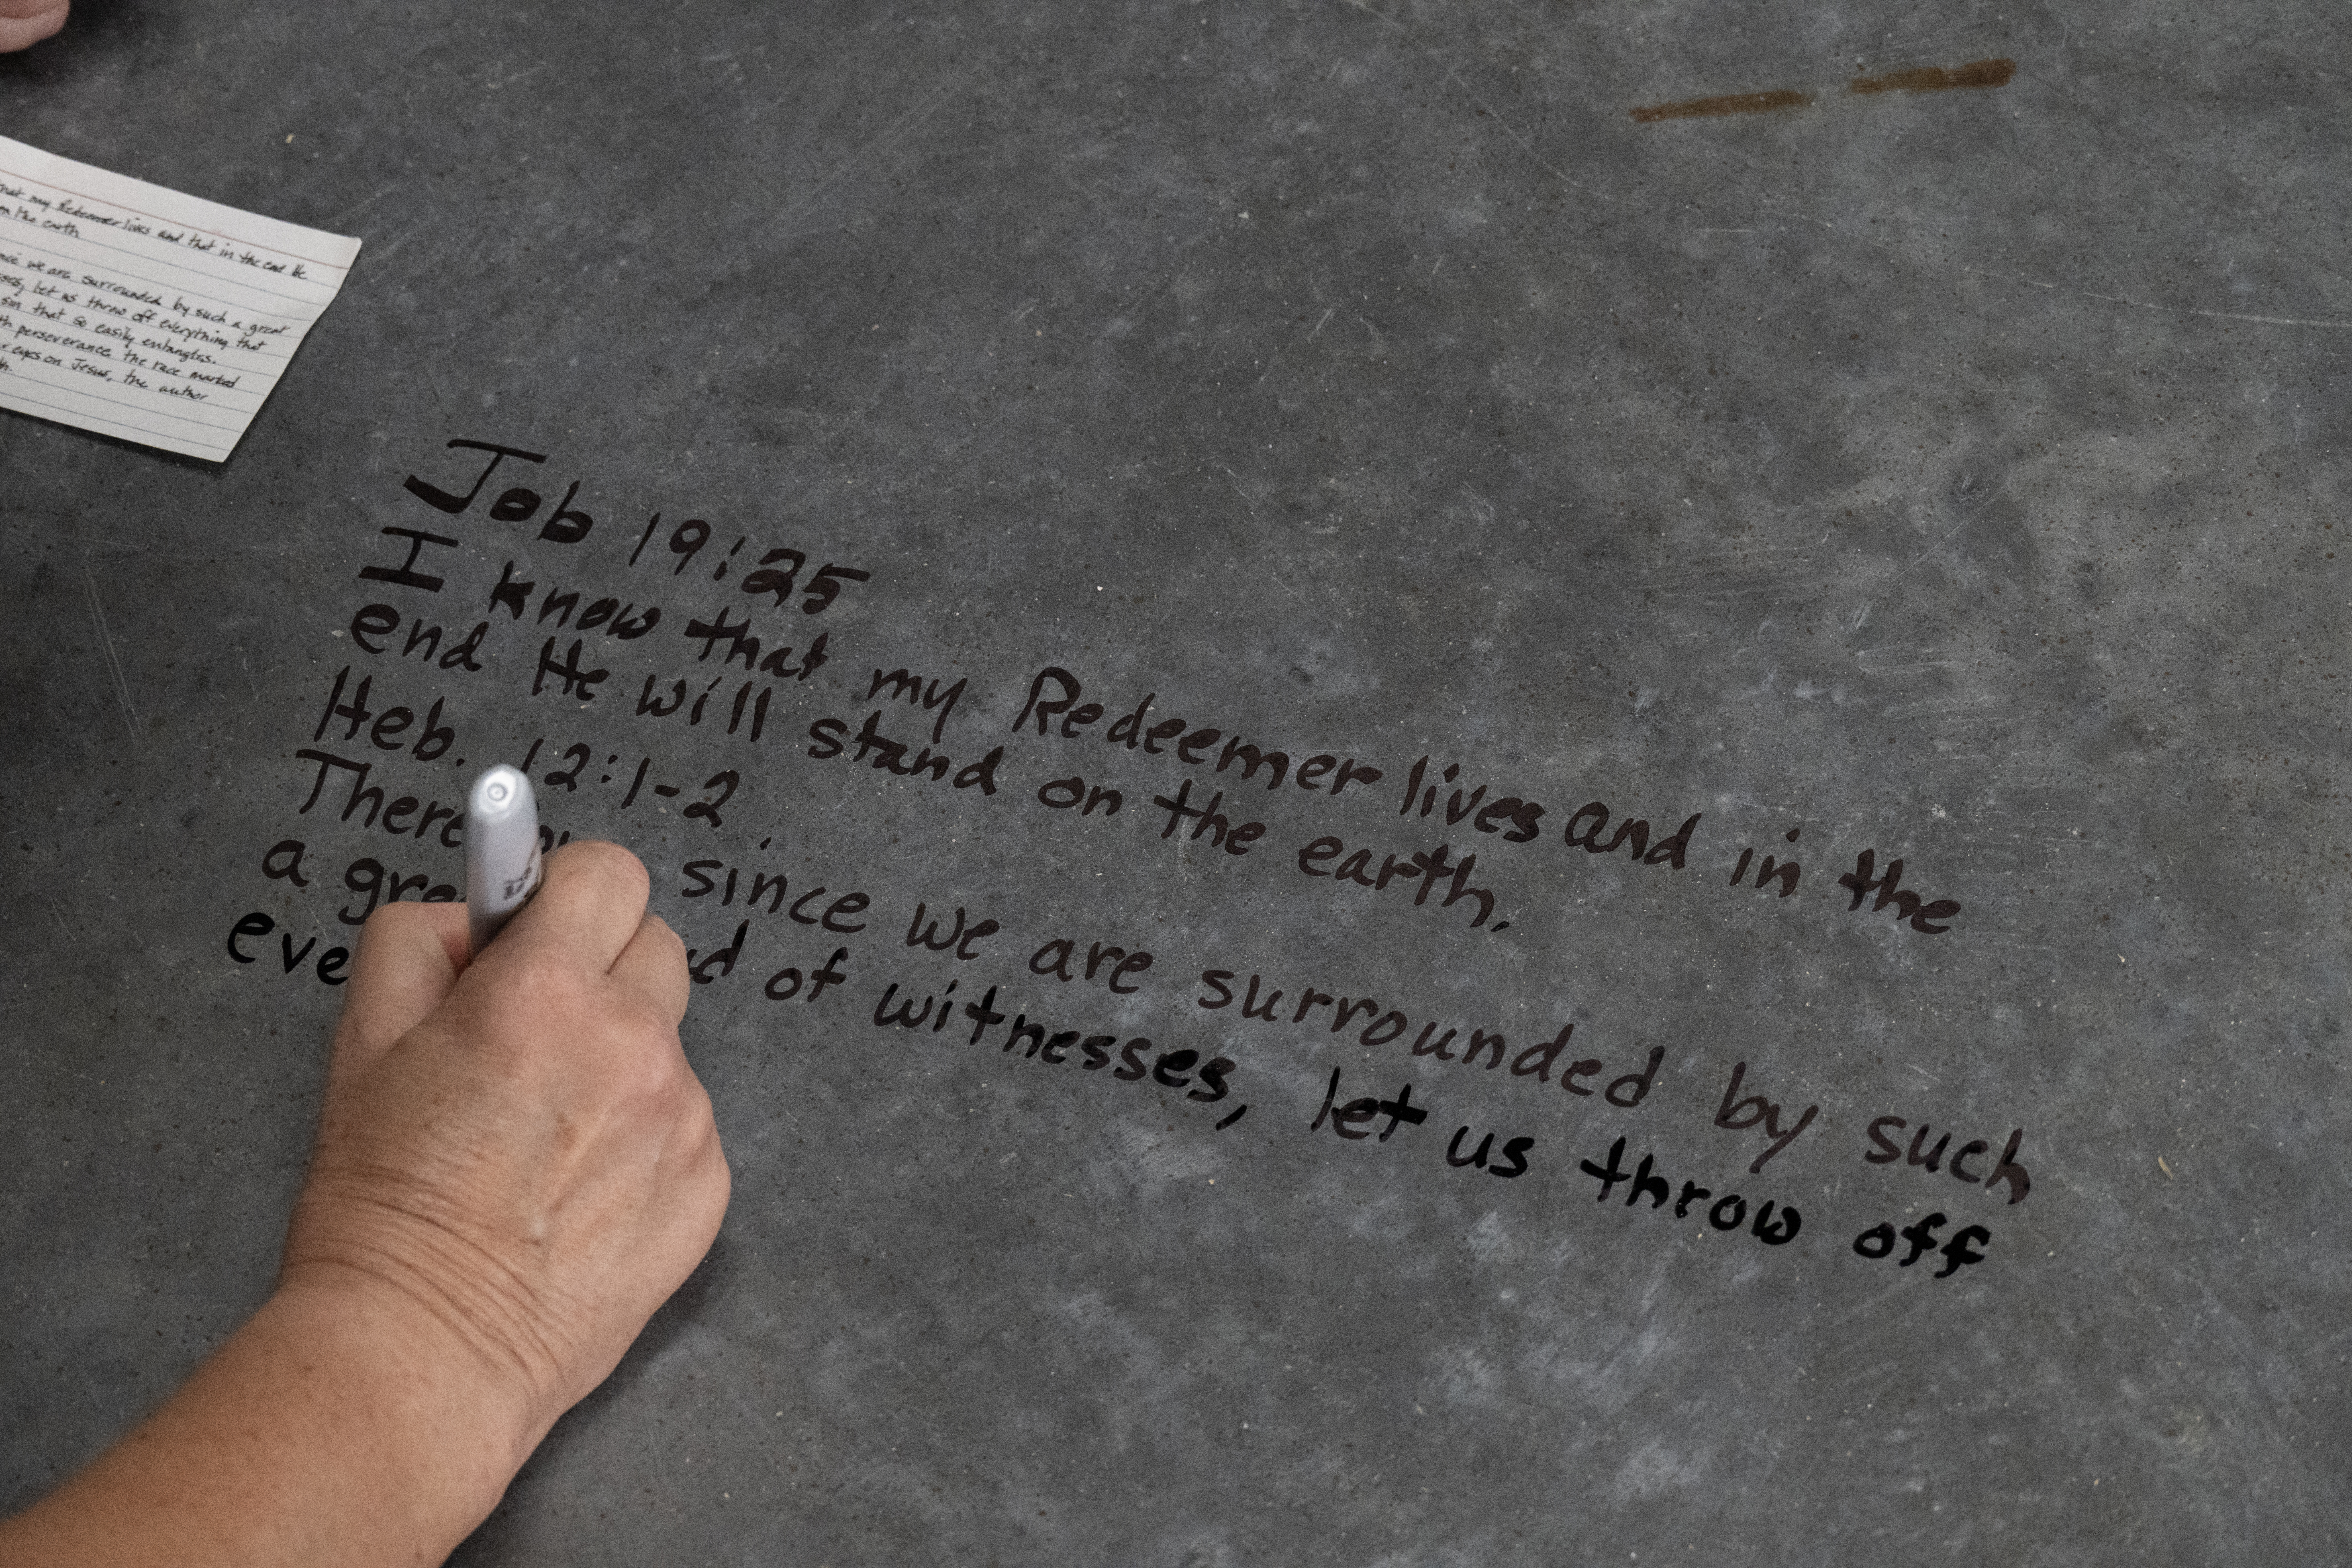 that my Redeemer lives and that in the end He
on the earth
we are surrounded by such a great
let us throw off everything that
sin that so easily entangles.
perseverance the race marked
eyes on Jesus, the author
Job 19:25
I know that my Redeemer lives and in the
end He will stand on the earth.
Heb. 12:1-2
since we are surrounded by such
a of witnesses, let us throw off
eve